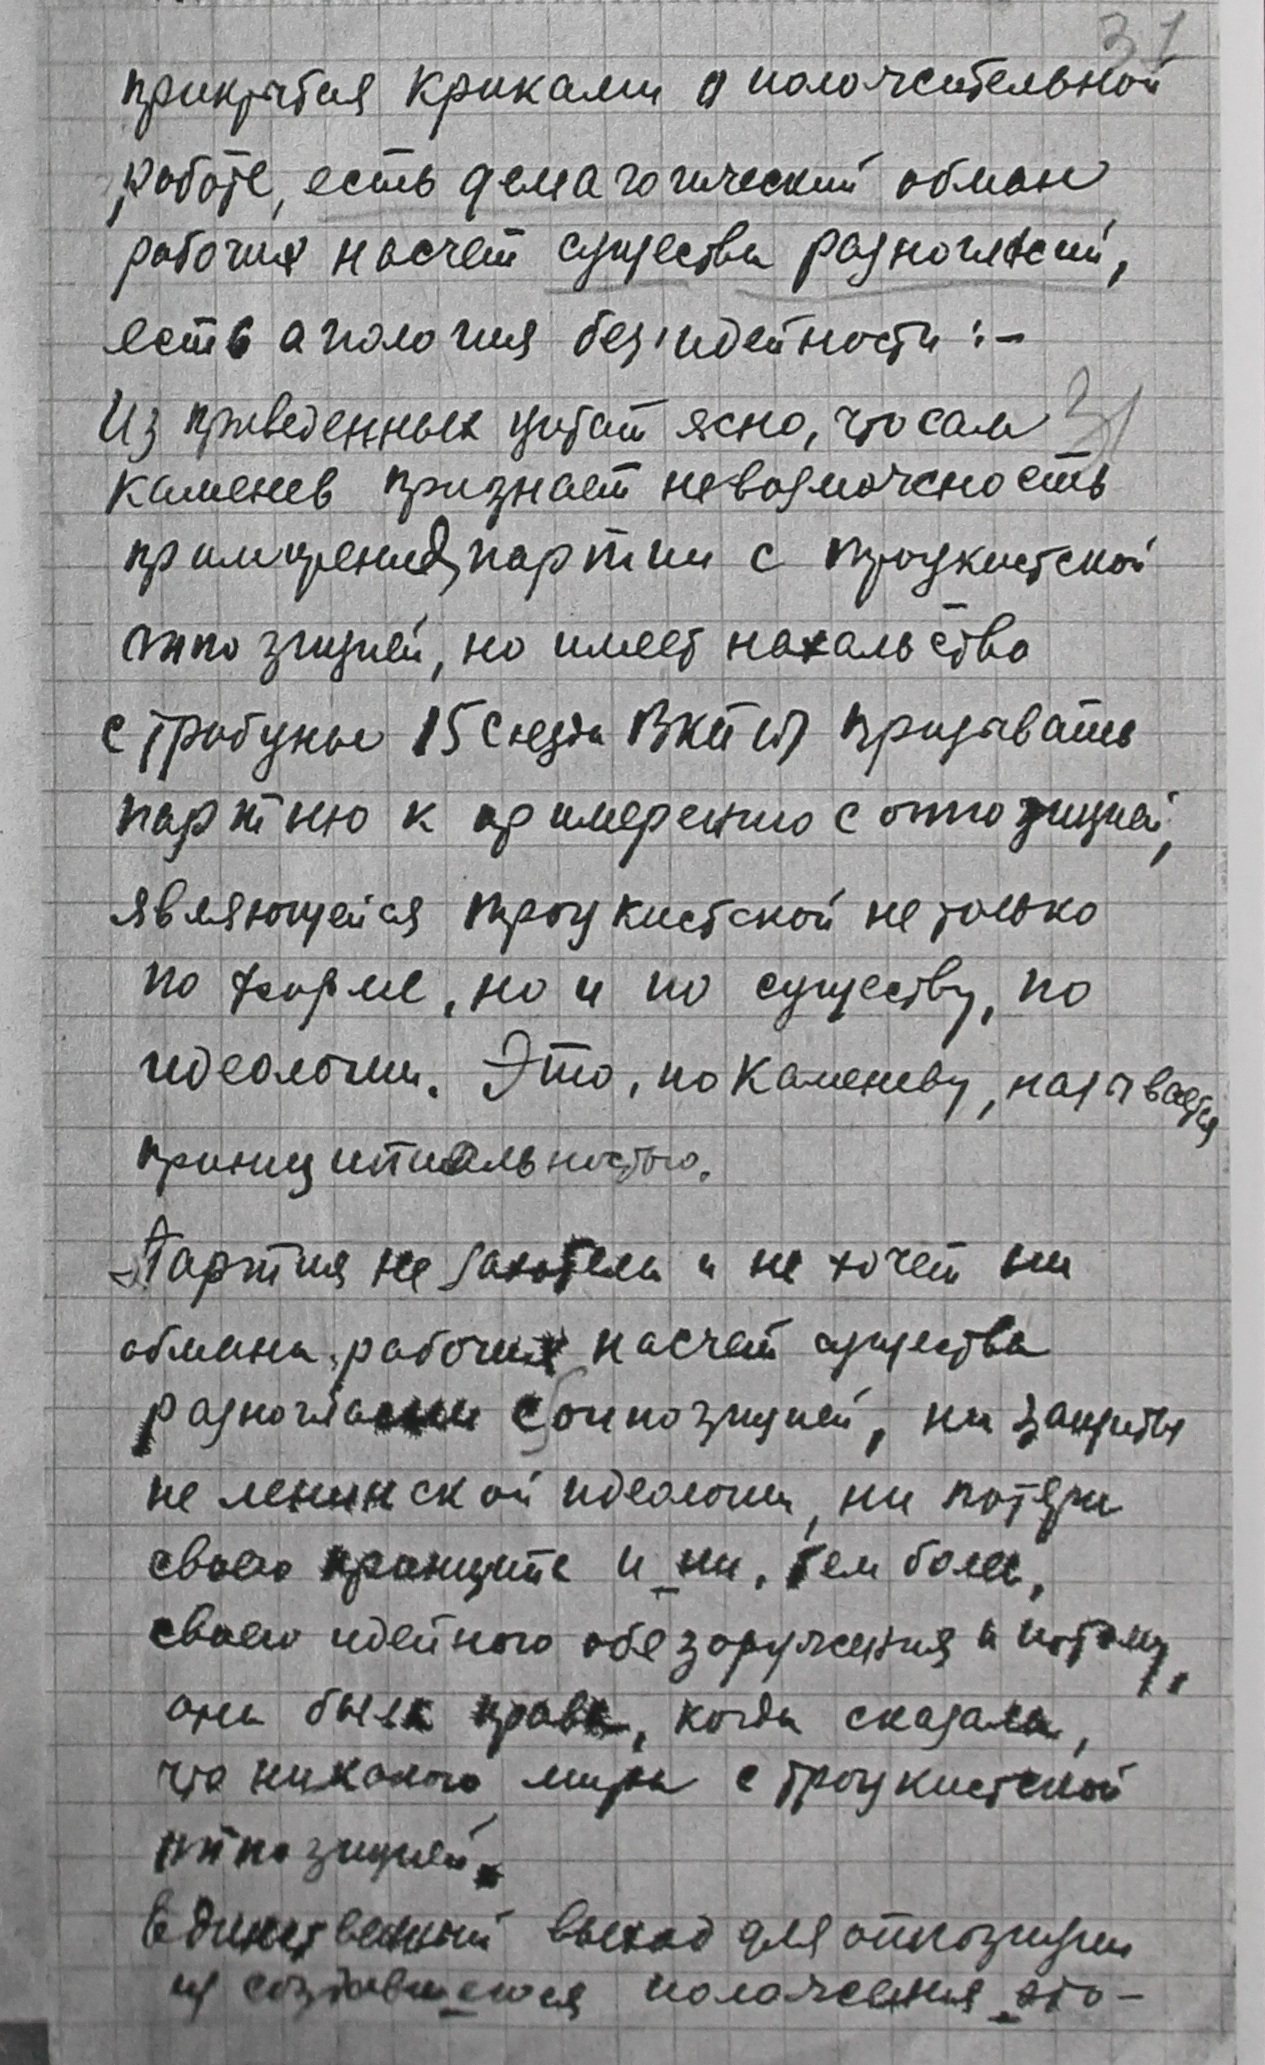 31
прикрытая криками о положительной
работе, есть демагогический обман
рабочих насчет существа разногласий,
есть апология безидейности :-
Из приведенных цитат ясно, что сам 31
Каменев признает невозможность
примирения партии с троцкистской
оппозицией, но имеет нахальство
с трибуны 15 съезда ВКП(б) призывать
партию к примерению с оппозицией,
являющейся троцкистской не только
по форме, но и по существу, по
идеологии. Это, по Каменеву, называется
принципиальностью.
Партия не захотела и не хочет ни
обмана рабочих насчет существа
разногласий с оппозицией, ни защиты
не ленинской идеологии, ни потери
своего принципа и ни, тем более,
своего идейного обезоружения и потому,
она была права, когда сказала,
что никакого мира с троцкистской
оппозицией.
Единственный выход для оппозиции
из создавшегося положения это -